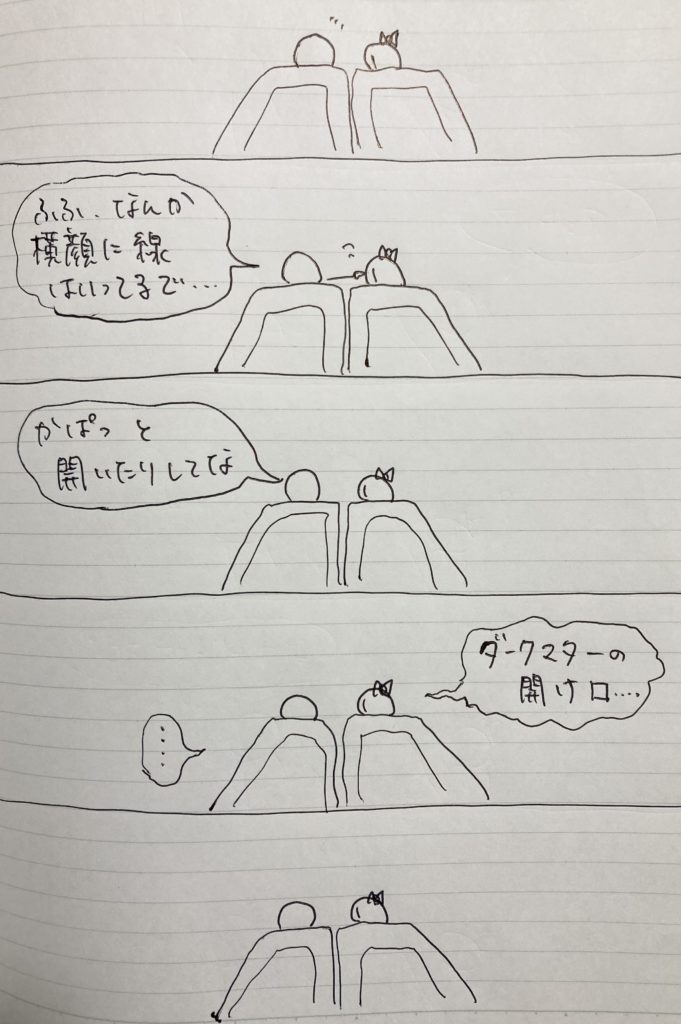 ふふ、なんか
横顔に線
はいってるで・・・
かぱっと
開いたりしてな
ダークスターの
開け口....
....